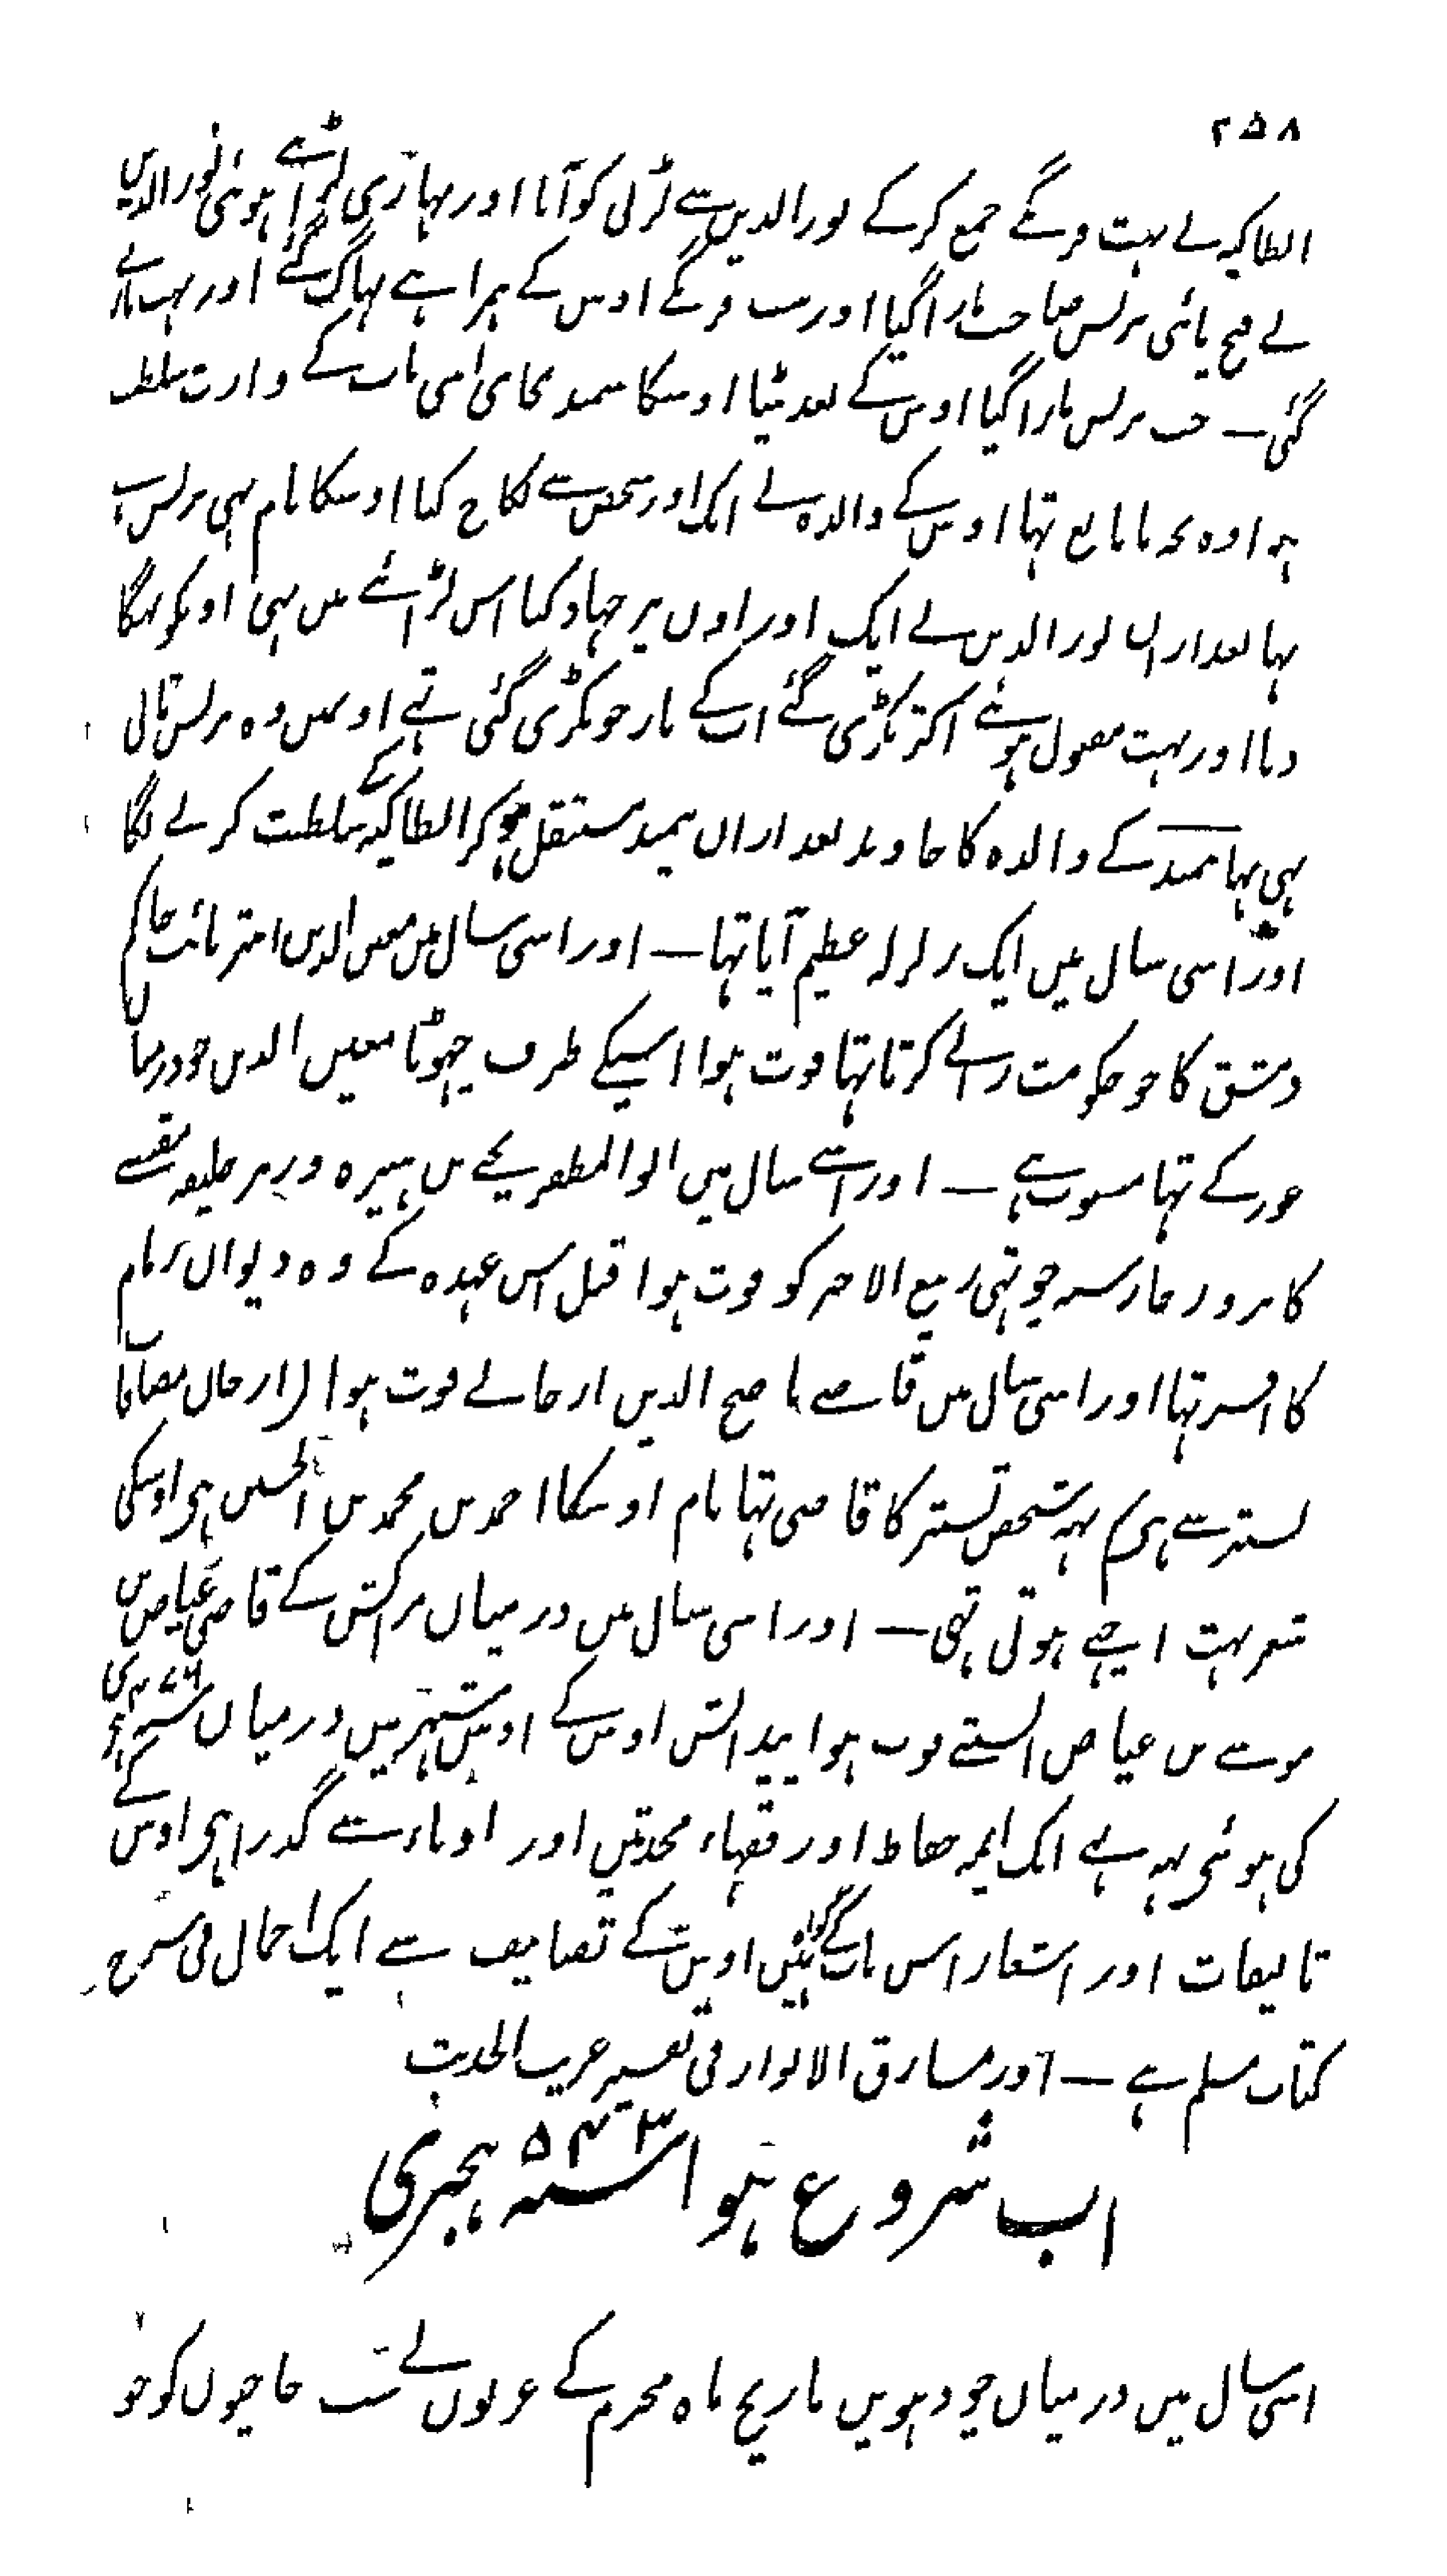 ۲۵۸
انطاکیہ نے بہت فرنگے جمع کر کے نور الدین سے لڑنی کو آیا اور بہاری لڑائے ہوئی نور الدین
نے فتح پائی برنس صاحب مارا گیا اور سب فرنگے اوس کے ہمراہے بہاگ گئے اور بہت مارے
گئی — جب برنس مارا گیا اوس کے بعد بیٹا اوسکا سمند بجای اسی باپ کے وارث سلطنت
ہوا وہ بچہ نابالغ تہا اوس کے والدہ نے ایک اور شخص سے نکاح کیا اوسکا نام بہی برنس
تہا بعد ازاں نور الدین نے ایک اور اون پر جہاد کیا اس لڑائے میں بہی اونکو بہگا
دیا اور بہت مقتول ہوئے اکثر پکڑی گئے اب کے بار جو پکڑی گئی تہے اونمیں وہ برنس ثانی
بہی تہا سمند کے والدہ کا خاوند بعد ازاں سمند مستقل ہو کر انطاکیہ کے سلطنت کرنے لگا
اور اسی سال میں ایک زلزلہ عظیم آیا تہا — اور اسی سال میں معین الدین انتر نائب حاکم
دمشق کا جو حکومت رانے کرتا تہا فوت ہوا اسیکے طرف چہوٹا معین الدین جو درمیان
غور کے تہا منسوب ہے — اور اسے سال میں ابو المظفر یحے بن ہبیرہ وزیر خلیفہ مقتفے
کا بروز چارشنبہ چوتہی ربیع الاخر کو فوت ہوا قبل اس عہدہ کے وہ دیوان زمام
کا افسر تہا اور اسی سال میں قاضے ناصح الدین ارجانے فوت ہوا (ارجان مضافات
تستر سے ہی) یہہ شخص تستر کا قاضی تہا نام اوسکا احمد بن محمد بن الحسین ہی اوسکی
شعر بہت اچہے ہوتی تہی — اور اسی سال میں درمیان مراکش کے قاضی عیاض بن
موسے بن عیاض السبتے فوت ہوا پیدائش اوس کے اوس شہر میں درمیان سنہ ۴۷۶ ہجری
کی ہوئی یہہ ہے ایک ایمہ حفاظ اور فقہاء محدثین اور ادباء سے گذرا ہی اوس کے
تالیفات اور اشعار اس بات کے گواہ ہیں اوس کے تصانیف سے ایک اکمال فی شرح
کتاب مسلم ہے — اور مشارق الانوار فی تفسیر غریب الحدیث
اب شروع ہوا سنہ ۵۴۳ ہجری
اسی سال میں درمیان چودہویں تاریخ ماہ محرم کے عربوں نے سب حاجیوں کو جو